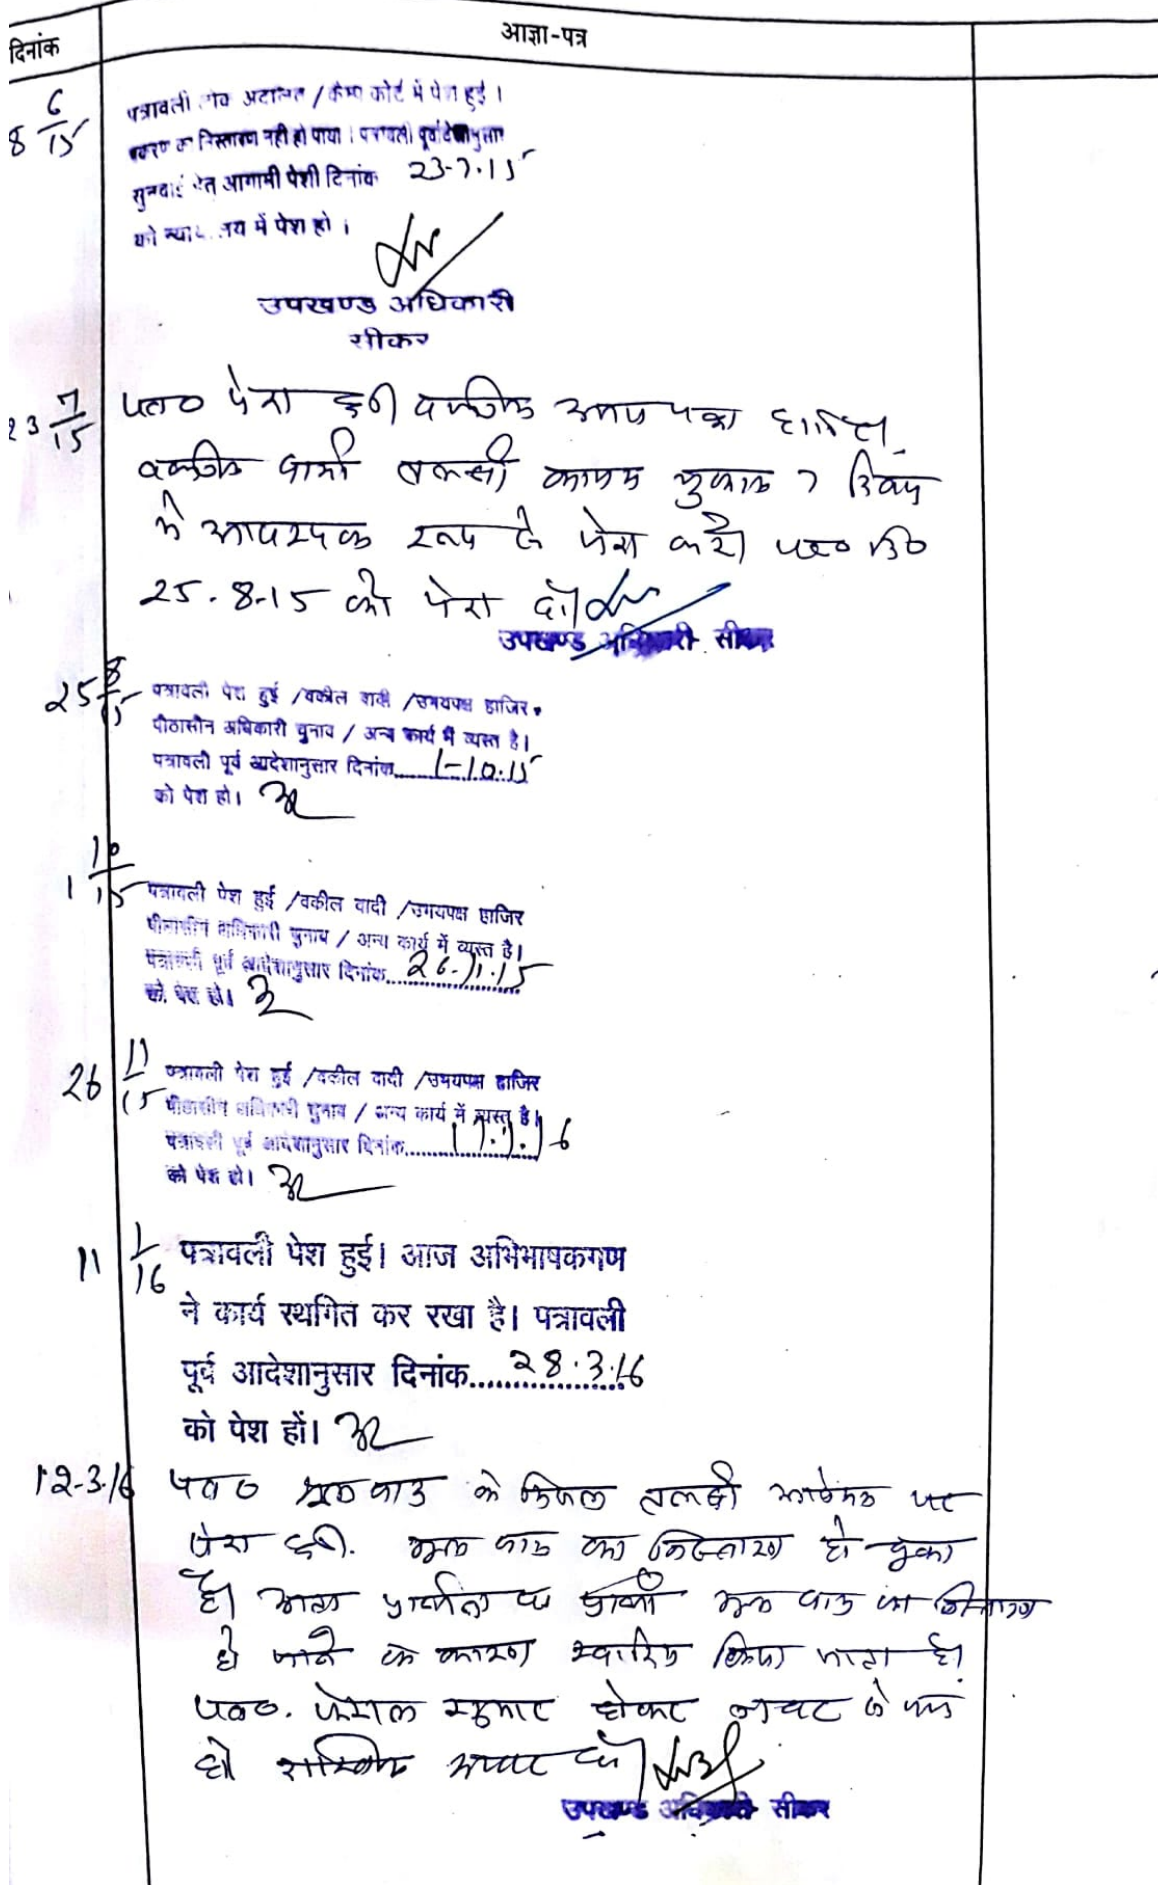 दिनांक
आज्ञा-पत्र
8 6/15
पत्रावली लोक अदालत / कैम्प कोर्ट में पेश हुई ।
प्रकरण का निस्तारण नही हो पाया । पत्रावली पूर्वादेशानुसार
सुनवाई हेतु आगामी पेशी दिनांक 23-7-15
को न्यायालय में पेश हो ।
उपखण्ड अधिकारी
सीकर
23 7/15
पत्रा० पेश हुई। वकील उभयपक्ष हाजिर
वकील प्रार्थी तलबी 7 दिवस
में आवश्यक रूप से पेश करें। पत्रा०
25.8.15 को पेश हो।
उपखण्ड अधिकारी सीकर
25 8/15
पत्रावली पेश हुई /वकील वादी /उभयपक्ष हाजिर
पीठासीन अधिकारी चुनाव / अन्य कार्य में व्यस्त है।
पत्रावली पूर्व आदेशानुसार दिनांक......1-10-15
को पेश हो।
1 10/15
पत्रावली पेश हुई /वकील वादी /उभयपक्ष हाजिर
पीठासीन अधिकारी चुनाव / अन्य कार्य में व्यस्त है।
पत्रावली पूर्व आदेशानुसार दिनांक......26-11-15
को पेश हो।
26 11/15
पत्रावली पेश हुई /वकील वादी /उभयपक्ष हाजिर
पीठासीन अधिकारी चुनाव / अन्य कार्य में व्यस्त है।
पत्रावली पूर्व आदेशानुसार दिनांक......11.1.16
को पेश हो।
11 1/16
पत्रावली पेश हुई। आज अभिभाषकगण
ने कार्य स्थगित कर रखा है। पत्रावली
पूर्व आदेशानुसार दिनांक......28.3.16
को पेश हों।
12-3-16
पत्रा० मूल वाद के तलबी पर
पेश हुई. मूल वाद का निस्तारण हो चुका
है। अतः मूल वाद का निस्तारण
हो जाने के कारण खारिज किया जाता है।
पत्रा०. फैसल शुमार होकर नम्बर से कम
हो दाखिल दफ्तर हो।
उपखण्ड अधिकारी सीकर